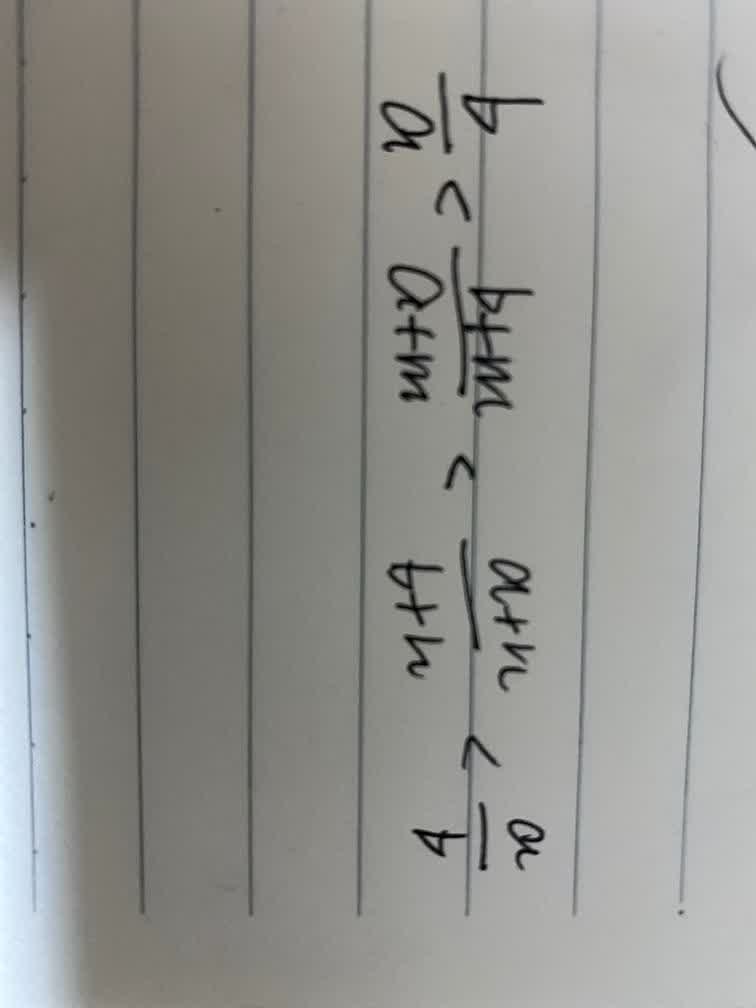 b/a < b+m/a+m < a+n/b+n < a/b